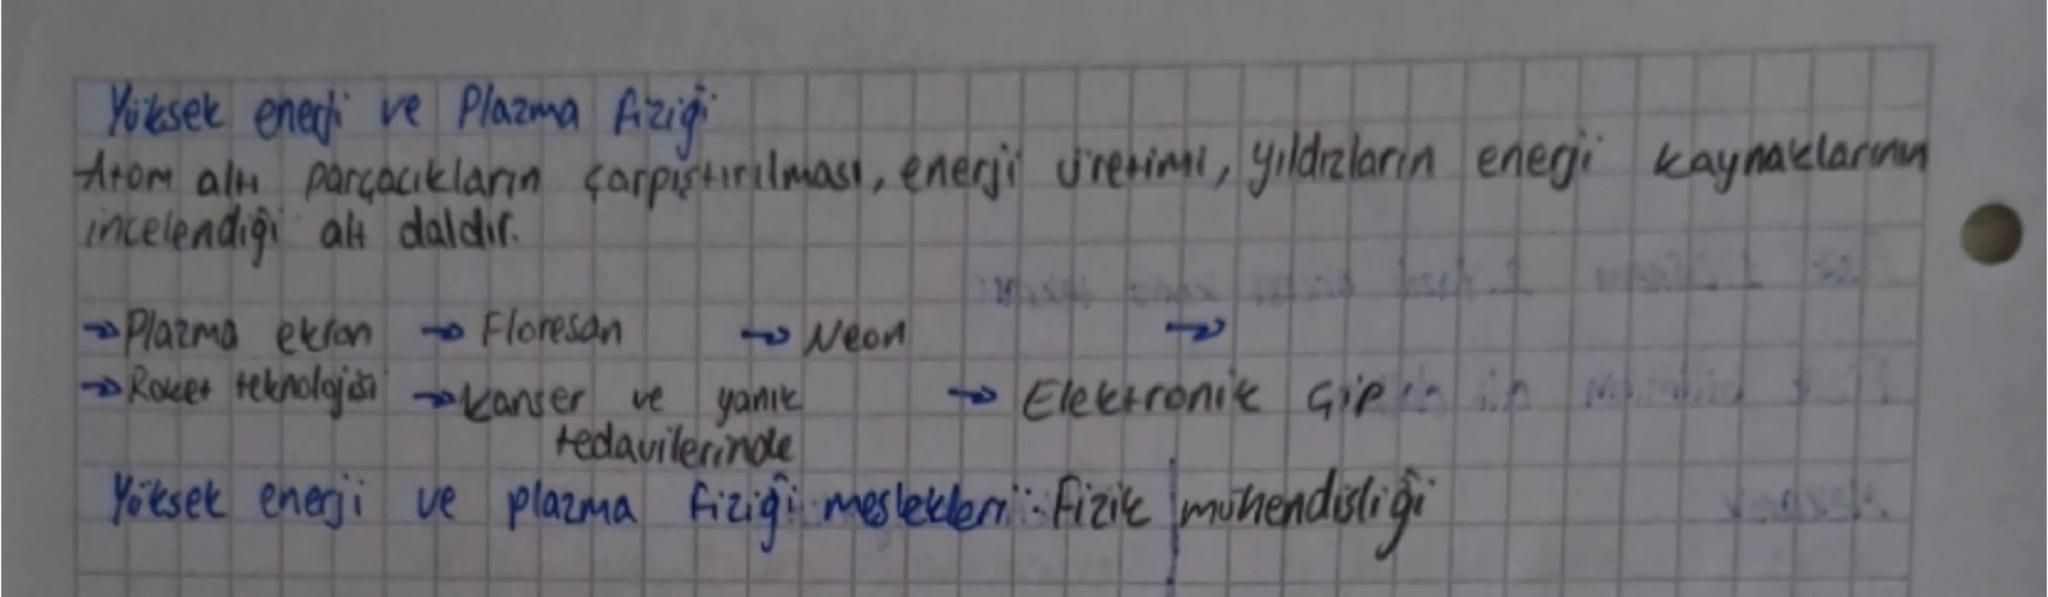 Yüksek enerji ve Plazma fiziği
Atom altı parçacıkların çarpıştırılması, enerji üretimi, yıldızların enerji kaynaklarının
incelendiği alt daldır.
→ Plazma ekran → Floresan → Neon →
→ Roket teknolojisi → Kanser ve yanık → Elektronik Çip
tedavilerinde
Yüksek enerji ve plazma fiziği meslekleri: Fizik mühendisliği